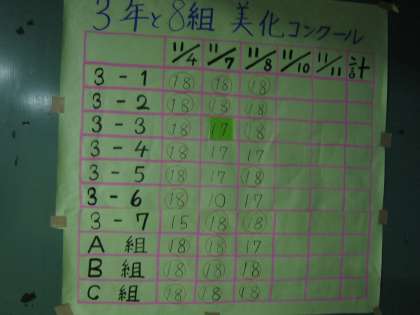 3年と8組 美化コンクール
11/4 11/7 11/8 11/10 11/11 計
3-1 18 18 18
3-2 18 18 18
3-3 18 17 18
3-4 18 17 17
3-5 18 17 18
3-6 18 10 17
3-7 15 18 18
A 組 18 18 17
B 組 18 18 18
C 組 18 18 18